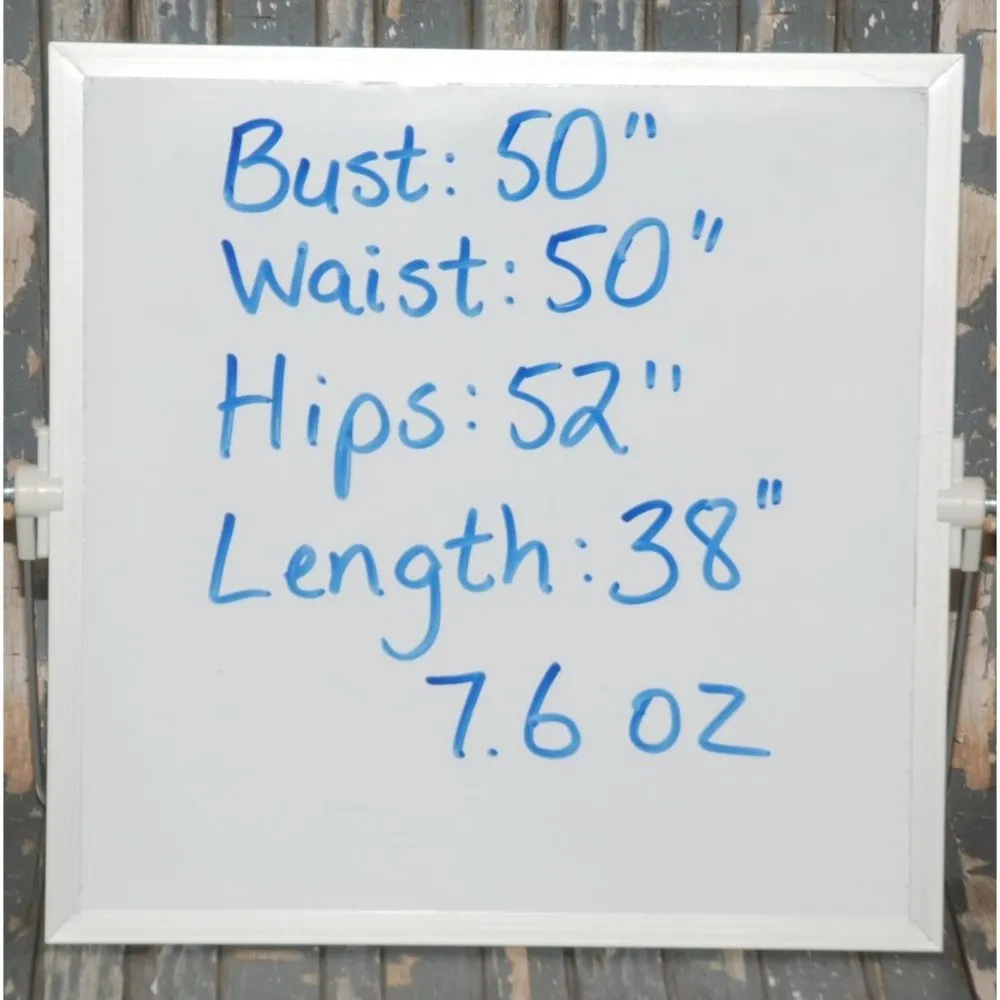 Bust: 50"
Waist: 50"
Hips: 52"
Length: 38"
7.6 oz